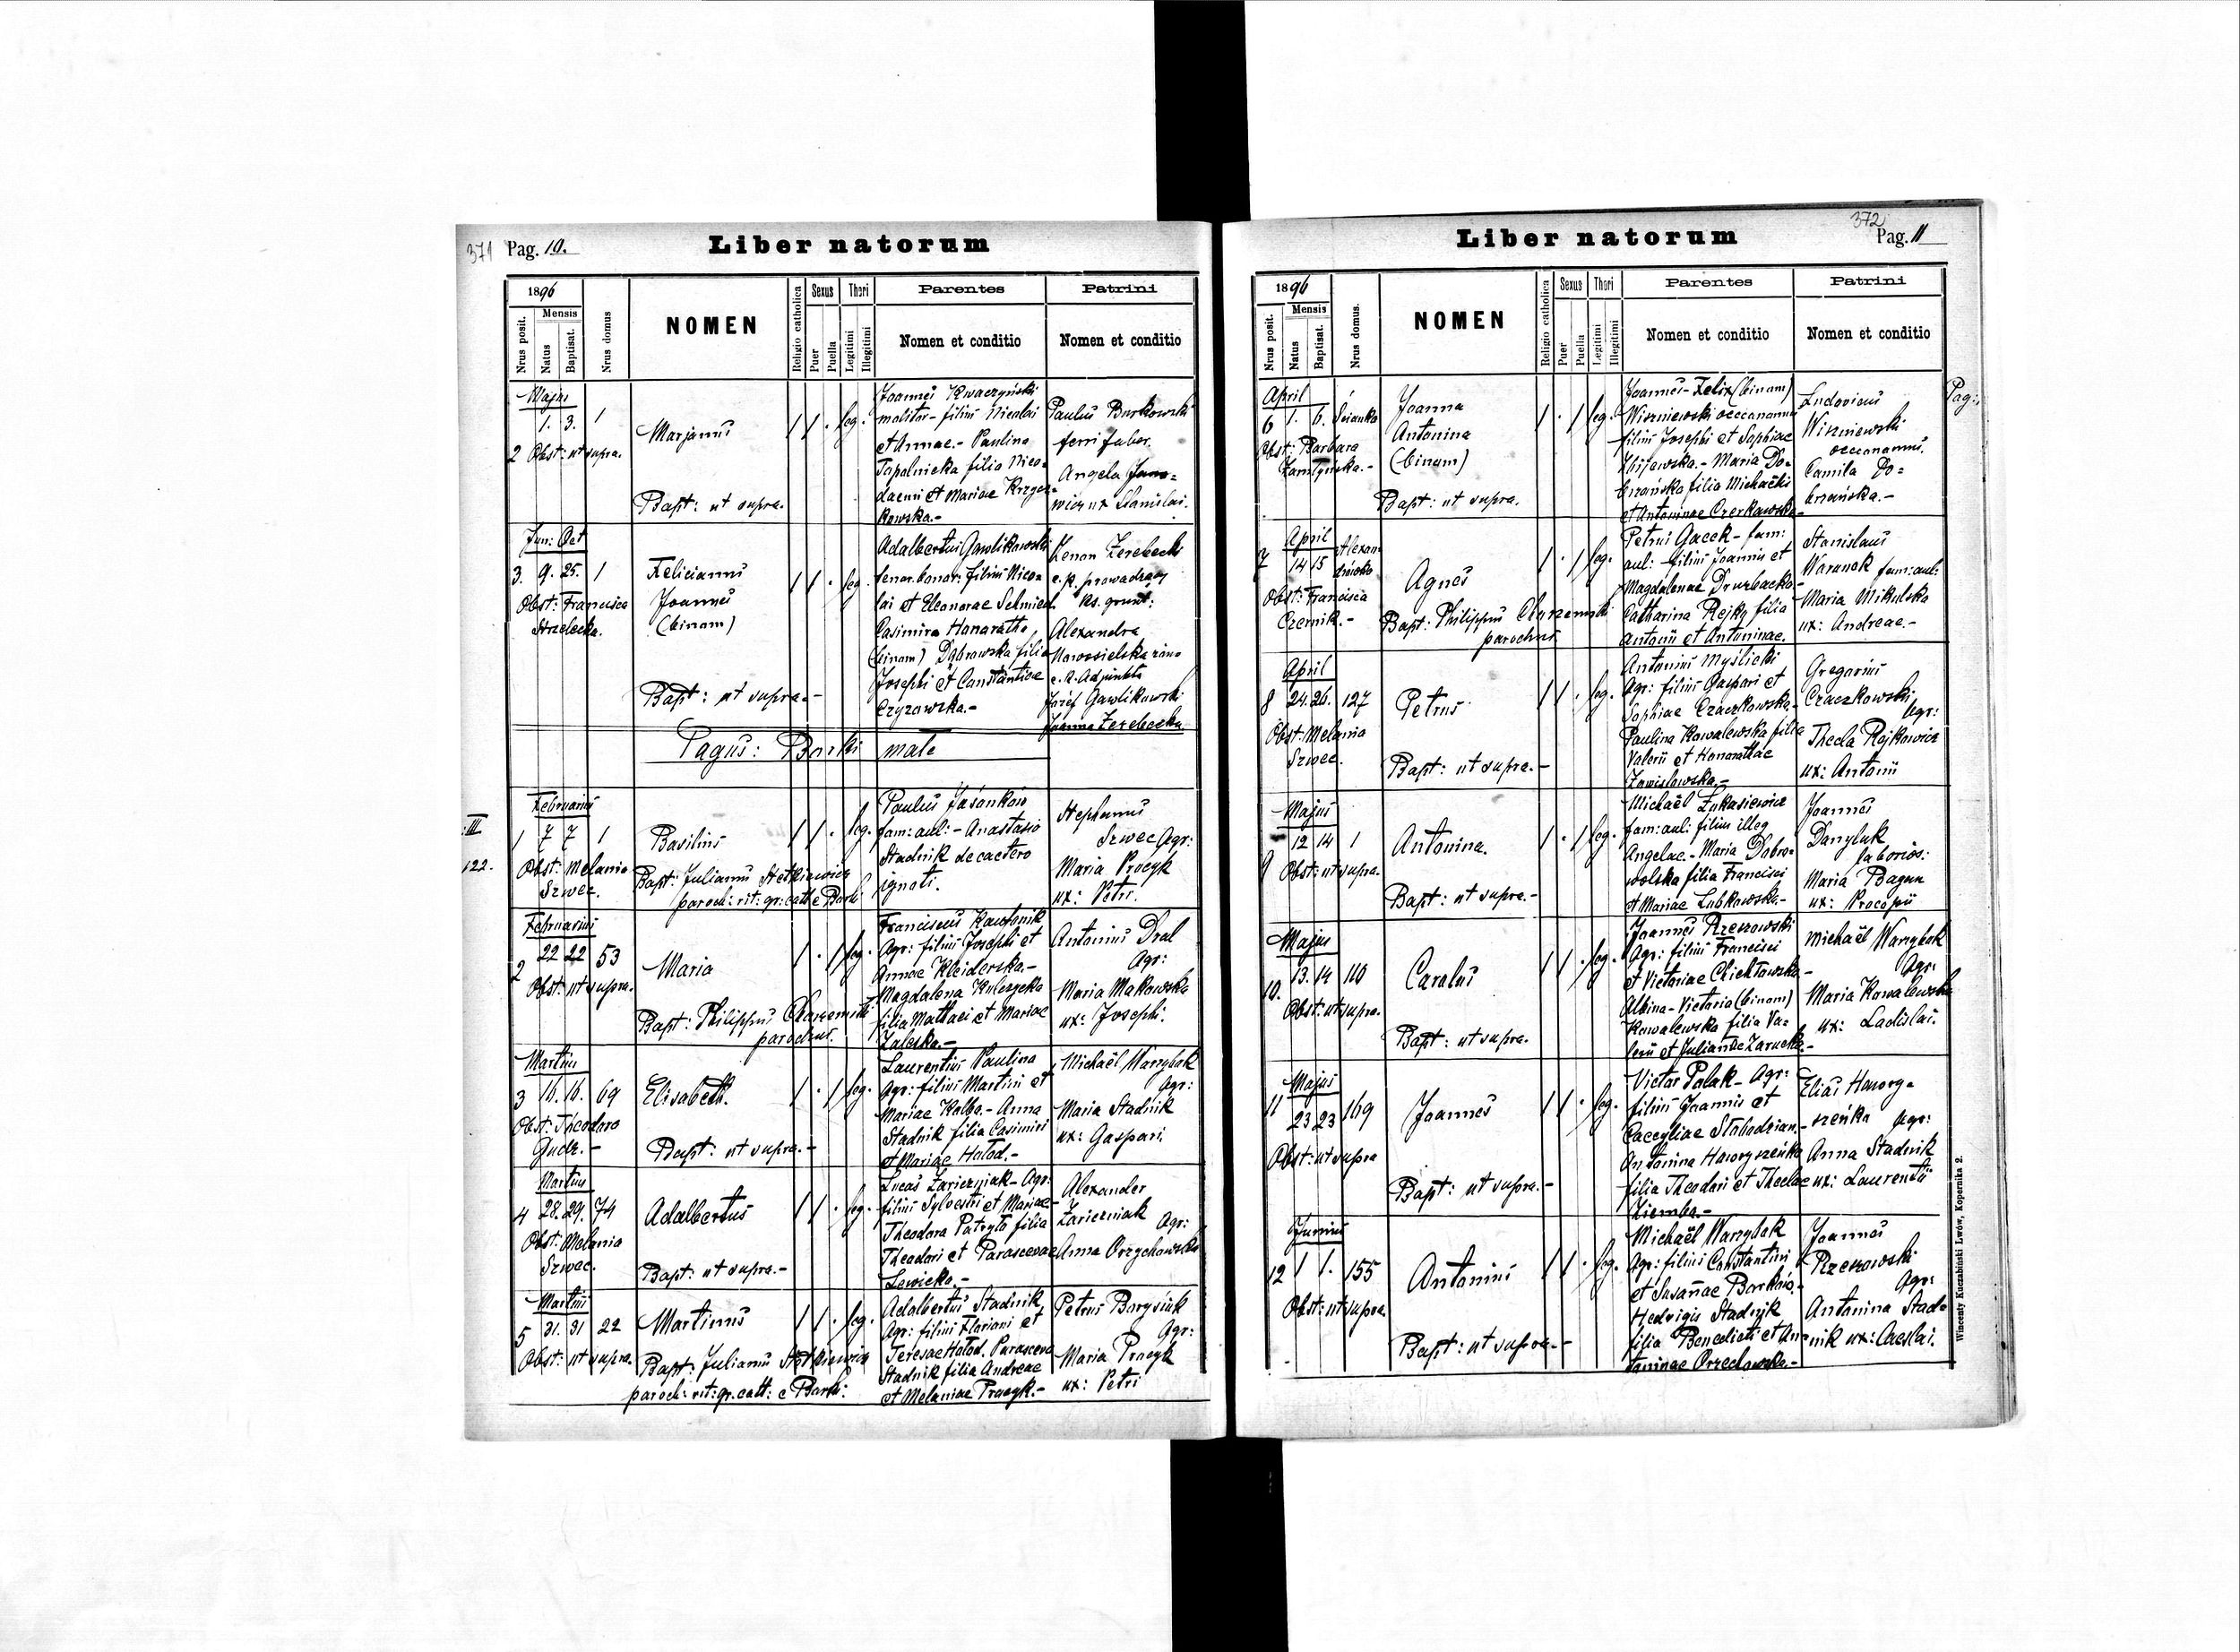 371 Pag. 10. Liber natorum
1896
Nrus posit.
Mensis
Natus
Baptisat.
Nrus domus
NOMEN
Religio catholica
Sexus
Puer
Puella
Thori
Legitimi
Illegitimi
Parentes
Nomen et conditio
Patrini
Nomen et conditio
Majus
2 1. 3. 1
Obst: ut supra.
Marjanus
Bapt: ut supra.
1 1 . leg.
Joannes Kwaczyński
molitor - filius Nicolai
et Annae. - Paulina
Topolnicka filia Nico=
daemi et Mariae Krzycz=
kowska. -
Paulus Burkowski
ferri faber.
Angela Jano=
wicz ux Stanislai.
Jun: Oct
3. 9. 25. 1
Obst: Francisca
Strzelecka.
Felicianus
Joannes
(binom)
Bapt: ut supra. -
1 1 . leg.
Adalbertus Gawlikowski
tenor. bonor: filius Nico=
lai et Eleonorae Schmied
Casimira Honoratha
(binom) Dąbrowska filia
Josephi et Constantiae
Czyzowska. -
Zenon Zerebecki
c. k. prowadzący
ks. grunt:
Alexandra
Nowosielska żona
c. k. Adjunkta
Józef Gawlikowski
Joanna Zerebecka
Pagus: Borki małe
III
122.
Februarius
1 7 7 1
Obst: Melania
Szwec.
Basilius
Bapt: Julianus Hetkiewicz
paroch: rit: gr: cath e Borki
1 1 . leg.
Paulus Jasonków
fam: aul: - Anastasio
Stadnik de caetero
ignoti.
Stephanus
Szwec Agr:
Maria Procyk
ux: Petri.
Februarius
2 22 22 53
Obst: ut supra.
Maria
Bapt: Philippus Charzemski
parochus.
1 . 1 leg.
Franciscus Kawtonik
Agr: filius Josephi et
Annae Kleiderska. -
Magdalena Kulczycka
filia Mathaei et Mariae
Zaleska. -
Antonius Dral
Agr:
Maria Makowska
ux: Josephi.
Martius
3 16. 16. 69
Obst: Theodora
Gudz. -
Elisabeth.
Bapt: ut supra. -
1 . 1 leg.
Laurentius Paulina
Agr: filius Martini et
Mariae Kolba. - Anna
Stadnik filia Casimiri
et Mariae Hołod. -
Michaël Warzybok
Agr:
Maria Stadnik
ux: Gaspari.
Martius
4 28. 29. 74
Obst: Melania
Szwec.
Adalbertus
Bapt: ut supra. -
1 1 . leg.
Lucas Zariczniak - Agr:
filius Sylvestri et Mariae -
Theodora Patryło filia
Theodori et Parascevae
Lewicka. -
Alexander
Zariczniak
Agr:
Anna Orzychowska
Martius
5 31. 31 22
Obst: ut supra.
Martinus
Bapt: Julianus Hetkiewicz
paroch: rit: gr. cath: e Borki:
1 1 . leg.
Adalbertus Stadnik
Agr: filius Floriani et
Teresae Hołod. Parasceva
Stadnik filia Andreae
et Melaniae Procyk. -
Petrus Borysiuk
Agr:
Maria Procyk
ux: Petri
372
Liber natorum Pag. 11
1896
Nrus posit.
Mensis
Natus
Baptisat.
Nrus domus.
NOMEN
Religio catholica
Sexus
Puer
Puella
Thori
Legitimi
Illegitimi
Parentes
Nomen et conditio
Patrini
Nomen et conditio
Pag:
April
6 1. 6. Ścianka
Obst: Barbara
Joanna
Antonina
(binom)
Bapt: ut supra.
1 . 1 leg.
Joannes - Felix (binom)
Wiszniewski oeconomus
filius Josephi et Sophiae
Kijewska. - Maria Do=
brzańska filia Michaëli
et Antoninae Czerkawska
Ludovicus
Wiszniewski
oeconomus.
Camila Do=
brzańska. -
April
7 14 15 Alexan
drówka
Obst: Francisca
Czernik. -
Agnes
Bapt: Philippus Charzemski
parochus.
1 . 1 leg.
Petrus Gacek - fam:
aul: - filius Joannis et
Magdalenae Druzbacka -
Catharina Rejky filia
Antonii et Antoninae.
Stanislaus
Woronok fam: aul:
Maria Mikulska
ux: Andreae. -
April
8 24. 26. 127
Obst: Melania
Szwec.
Petrus
Bapt: ut supra. -
1 1 . leg.
Antonius Myślicki
Agr: filius Gaspari et
Sophiae Czaczkowska -
Paulina Kowalewska filia
Valerii et Honorathae
Zawislowska. -
Gregorius
Czaczkowski
Agr:
Thecla Rojkowicz
ux: Antonii
Majus
9 12 14 1
Obst: ut supra.
Antonina.
Bapt: ut supra. -
1 . 1 leg.
Michaël Łukasiewicz
fam: aul: filius illeg
Angelae. - Maria Dobro=
wolska filia Francisci
et Mariae Lubkowska. -
Joannes
Danyluk
laborios:
Maria Bagun
ux: Procopii
Majus
10. 13. 14 110
Obst: ut supra.
Carolus
Bapt: ut supra.
1 1 . leg.
Joannes Rzeszowski
Agr: filius Francisci
et Victoriae Chichłowska -
Albina - Victoria (binom)
Kowalewska filia Va=
lerii et Julianae Zarucka. -
Michaël Warzybok
Agr:
Maria Kowalewska
ux: Ladislai.
Majus
11 23 23 169
Obst: ut supra
Joannes
Bapt: ut supra. -
1 1 . leg.
Victor Polak - Agr:
filius Joannis et
Caecyliae Słobodzian -
Antonina Haworyszeńka
filia Theodori et Theclae
Ziemba. -
Elias Hawory=
szeńka Agr:
Anna Stadnik
ux: Laurentii
Junius
12 1 1. 155
Obst: ut supra
Antonius
Bapt: ut supra. -
1 1 . leg.
Michaël Warzybok
Agr: filius Constantini
et Susannae Borków. -
Hedvigis Stadnyk
filia Benedicti et An=
toninae Orzechowska. -
Joannes
Rzeszowski
Agr:
Antonina Stad=
nik ux: Caeslai.
Wincenty Kuczabiński Lwów, Kopernika 2.